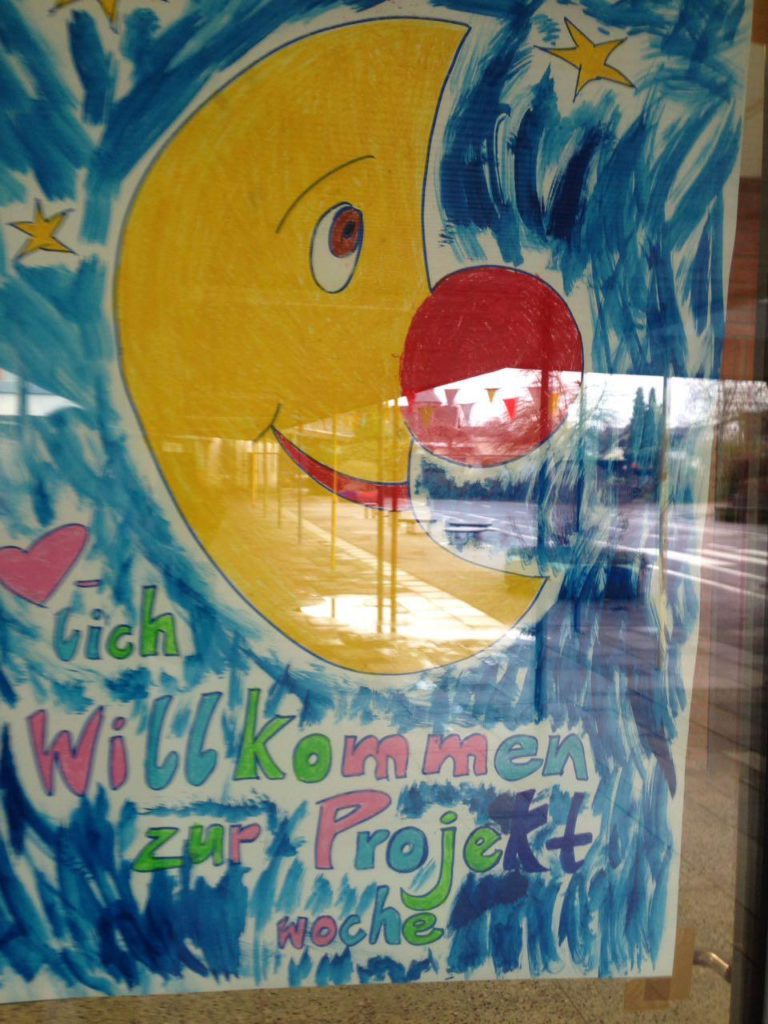 -lich
Willkommen
zur Projekt
woche